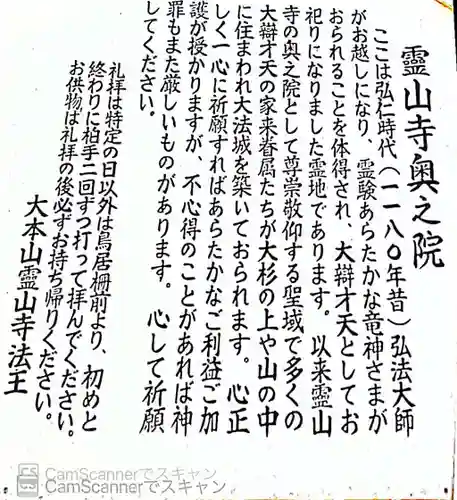 靈山寺奥之院
ここは弘仁時代(一一八〇年昔)弘法大師
がお越しになり、霊験あらたかな竜神さまが
おられることを体得され、大辯才天としてお
祀りになりました霊地であります。以来霊山
寺の奥之院として尊崇敬仰する聖域で多くの
大辯才天の家来眷属たちが大杉の上や山の中
に住まわれ大法城を築いておられます。心正
しく一心に祈願すればあらたかなご利益ご加
護が授かりますが、不心得のことがあれば神
罪もまた厳しいものがあります。心して祈願
してください。
礼拝は特定の日以外は鳥居柵前より、初めと
終わりに柏手二回ずつ打って拝んでください。
お供物ば礼拝の後必ずお持ち帰りください。
大本山霊山寺法王
CamScannerでスキャン
CamScannerでスキャン